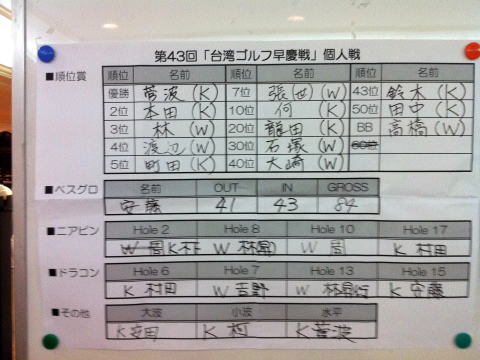 第43回「台湾ゴルフ早慶戦」個人戦
■順位賞 順位 名前 順位 名前 順位 名前
優勝 菅波(K) 7位 張世(W) 43位 鈴木(K)
2位 本田(K) 10位 何(K) 50位 田中(K)
3位 林(W) 20位 龍田(K) BB 高橋(W)
4位 渡辺(W) 30位 石塚(W) 60位
5位 町田(K) 40位 大崎(W)
■ベスグロ 名前 OUT IN GROSS
安藤 41 43 84
■ニアピン Hole 2 Hole 8 Hole 10 Hole 17
W 周 K 林 W 林 W 周 K 村田
■ドラコン Hole 6 Hole 7 Hole 13 Hole 15
K 村田 W 吉野 W 林 K 安藤
■その他 大波 小波 水平
K 安田 K K 菅波